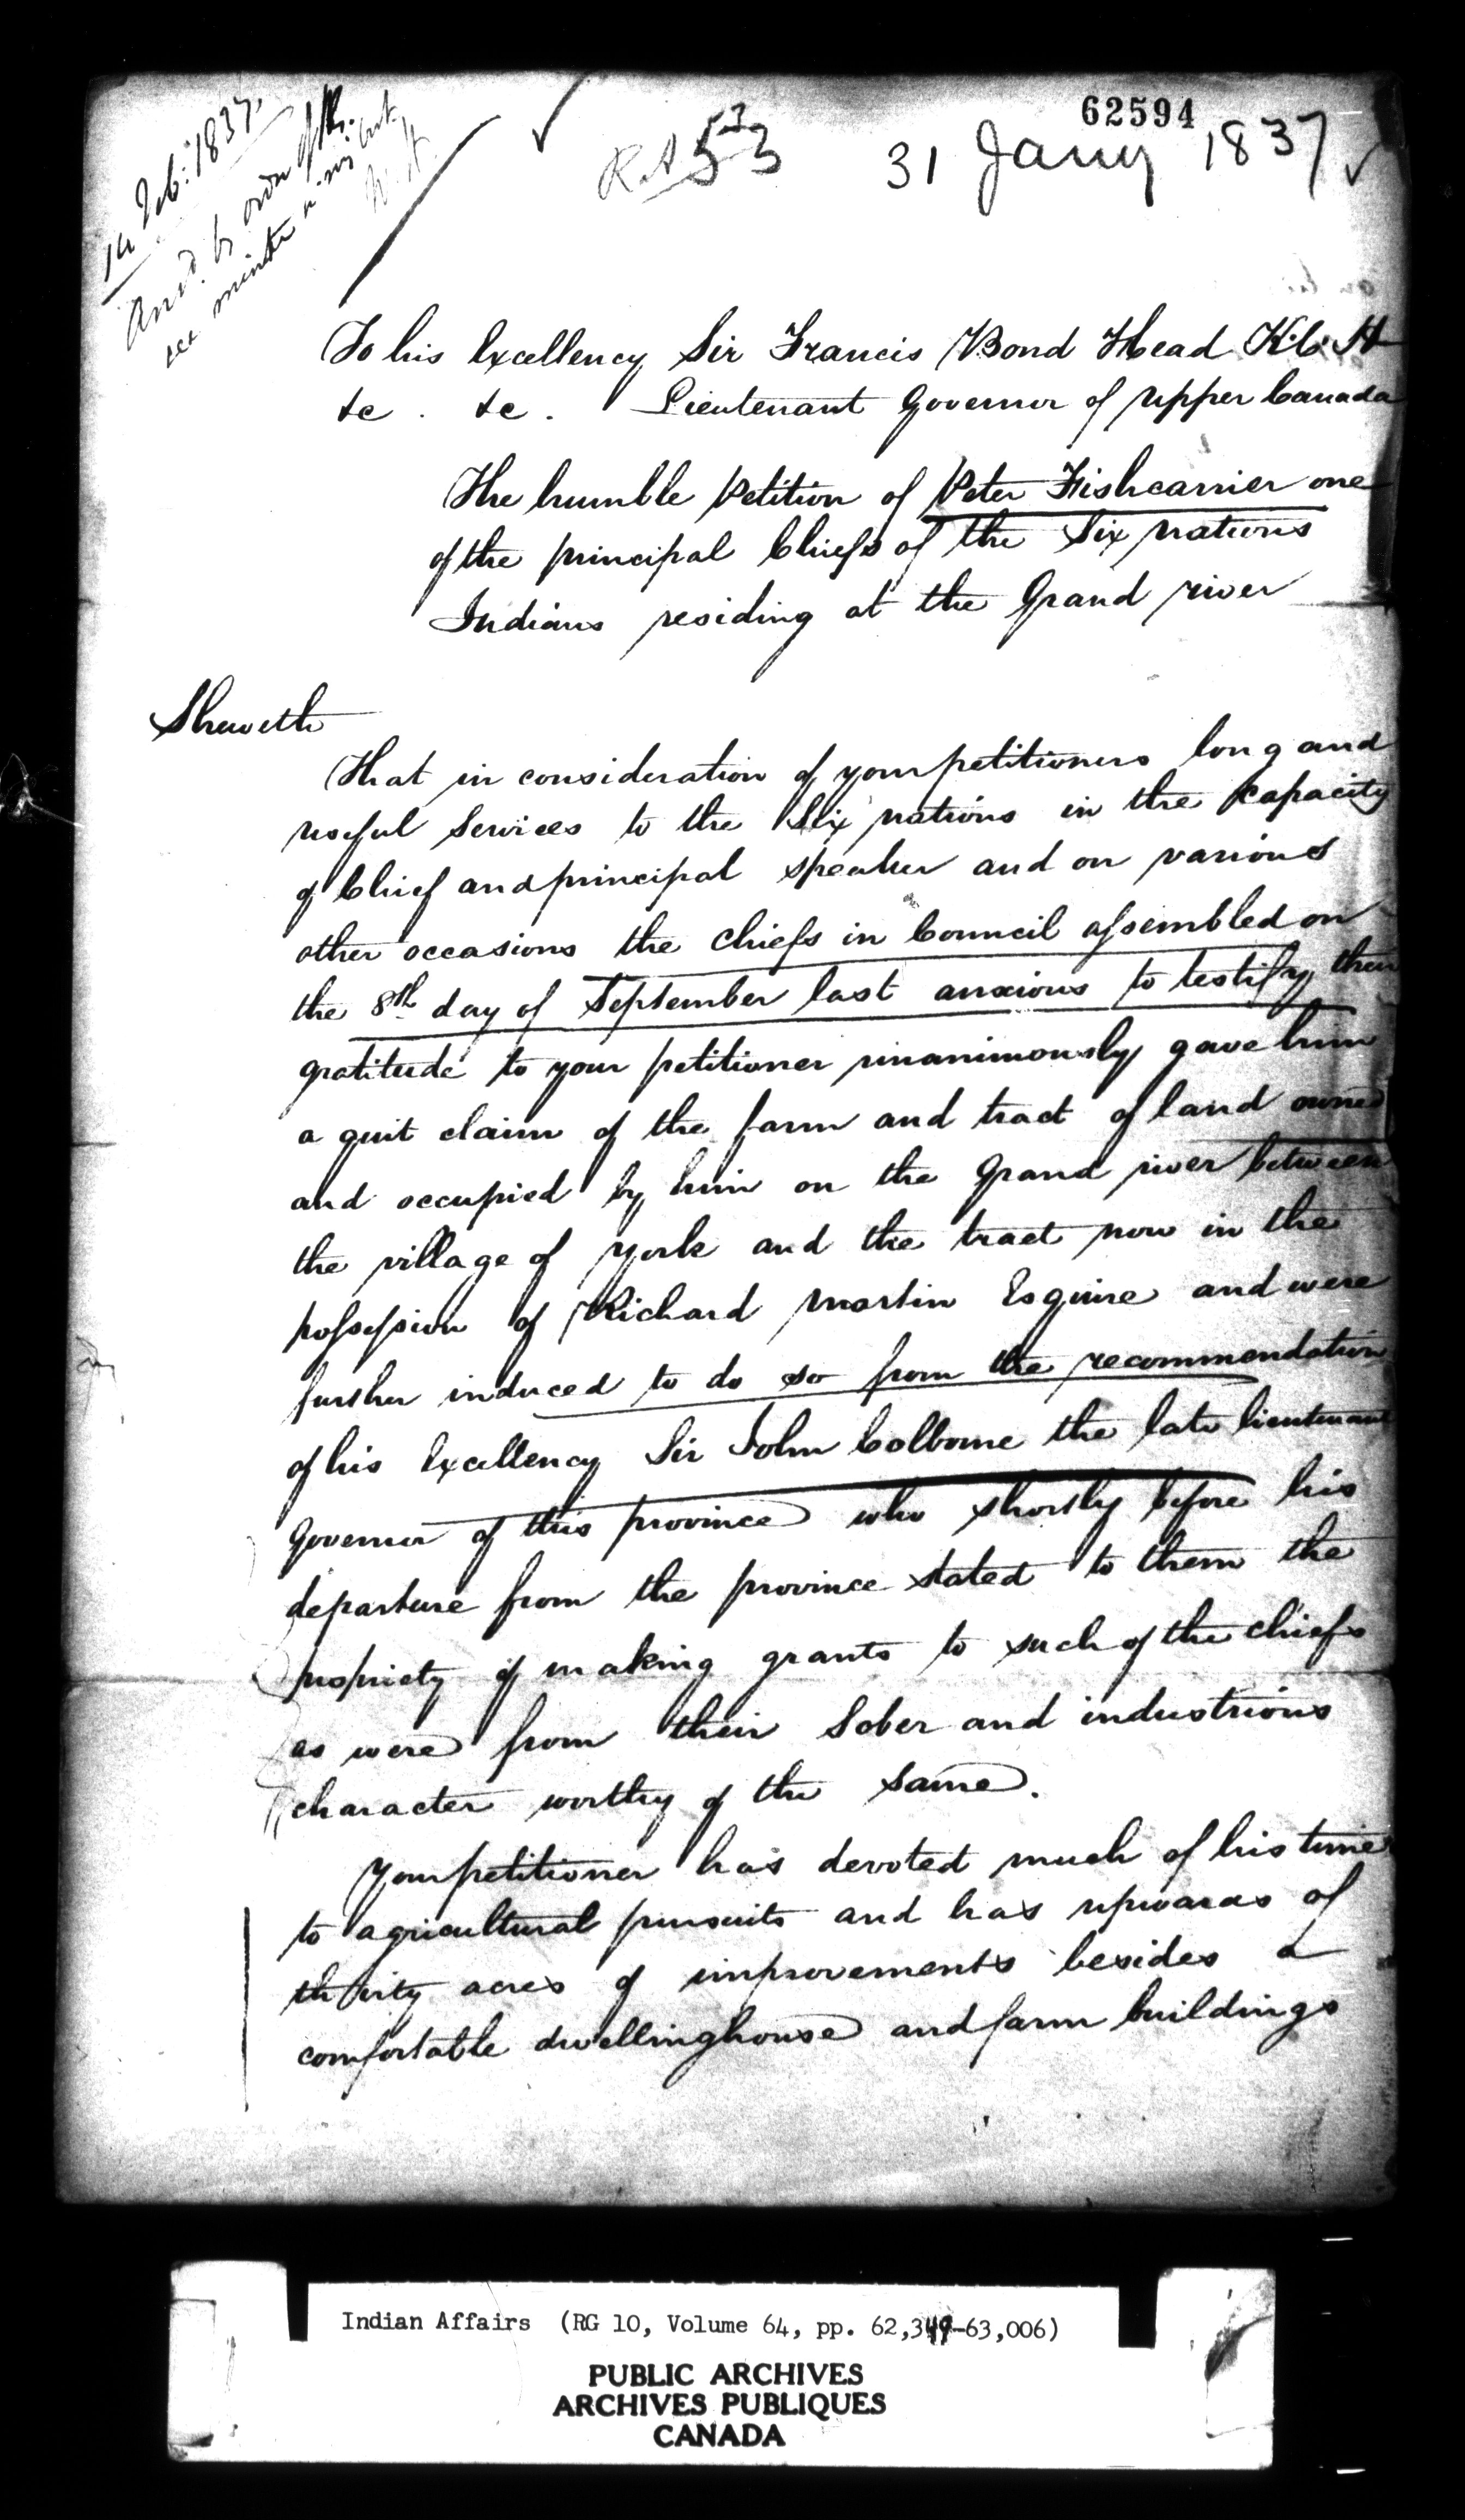 62594
14 Feb: 1837.
Ansd. by order of
see minute
R.A 53
31 Jany 1837
To his Excellency Sir Francis Bond Head K.C.H
&c . &c . Lieutenant Governor of Upper Canada
The humble Petition of Peter Fishcarrier one
of the principal Chiefs of the Six nations
Indians residing at the Grand river
Sheweth
That in consideration of your petitioners long and
useful Services to the Six nations in the Capacity
of Chief and principal speaker and on various
other occasions the chiefs in Council assembled on
the 8th day of September last anxious to testify their
gratitude to your petitioner unanimously gave him
a quit claim of the farm and tract of land owned
and occupied by him on the Grand river between
the village of York and the tract now in the
possession of Richard Martin Esquire and were
further induced to do so from the recommendation
of his Excellency Sir John Colborne the late lieutenant
Governor of this province who shortly before his
departure from the province stated to them the
propriety of making grants to such of the chiefs
as were from their Sober and industrious
character worthy of the same.
Your petitioner has devoted much of his time
to agricultural pursuits and has upwards of
thirty acres of improvements besides a
comfortable dwellinghouse and farm buildings
Indian Affairs (RG 10, Volume 64, pp. 62,349-63,006)
PUBLIC ARCHIVES
ARCHIVES PUBLIQUES
CANADA